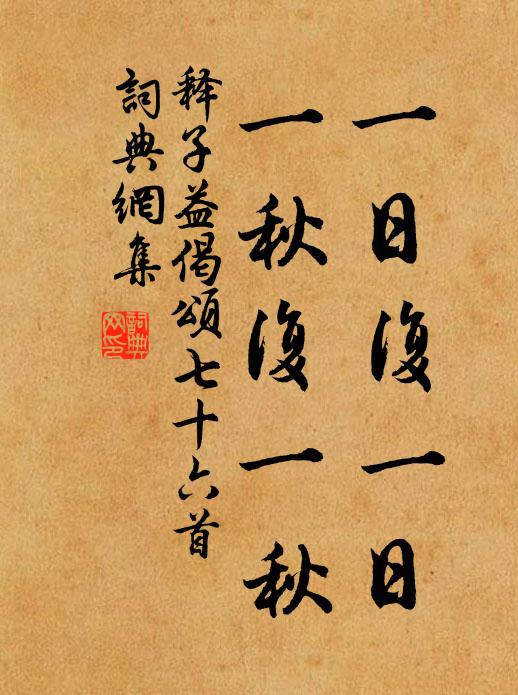 一日復一日
一秋復一秋
释子益偈頌七十六首
詞典網集
詞典网印